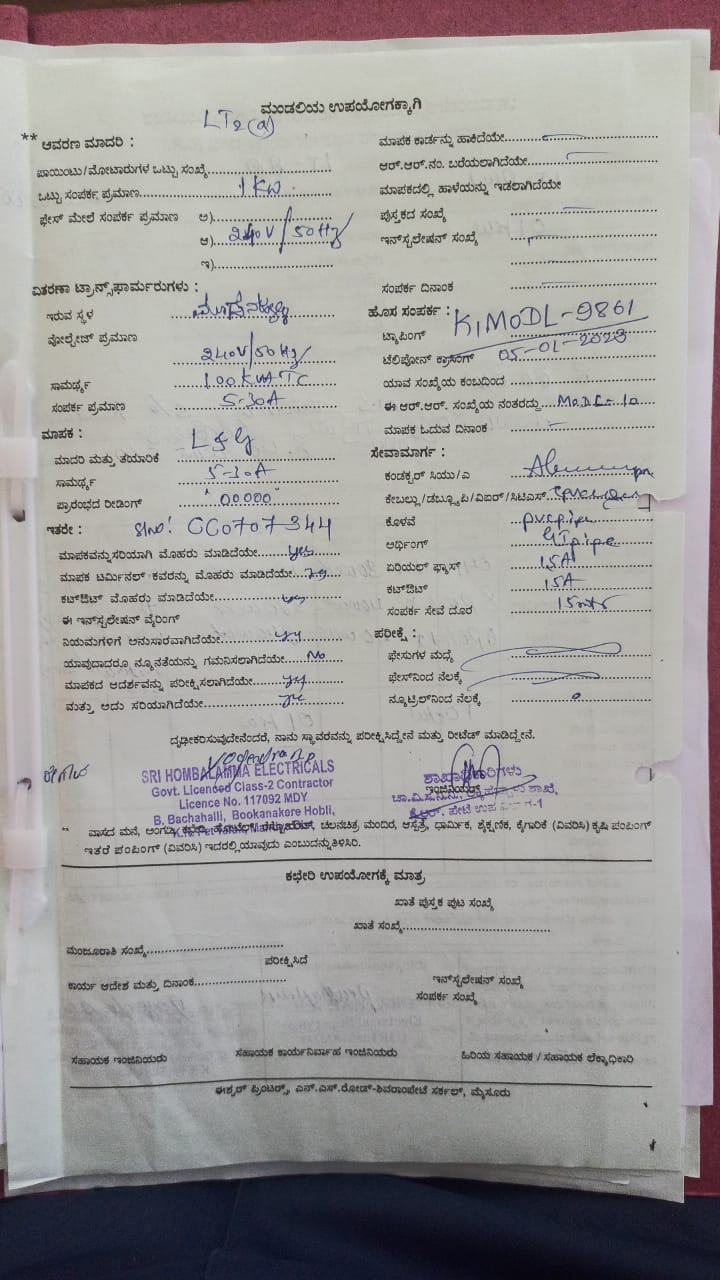 ಮಂಡಲಿಯ ಉಪಯೋಗಕ್ಕಾಗಿ
LT2(a)
** ಆವರಣ ಮಾದರಿ :
ಪಾಯಿಂಟು/ಮೋಟಾರುಗಳ ಒಟ್ಟು ಸಂಖ್ಯೆ
ಒಟ್ಟು ಸಂಪರ್ಕ ಪ್ರಮಾಣ 1 KW
ಫೇಸ್ ಮೇಲೆ ಸಂಪರ್ಕ ಪ್ರಮಾಣ ಅ)
ಆ) 240V/50Hz
ಇ)
ವಿತರಣಾ ಟ್ರಾನ್ಸ್‌ಫಾರ್ಮರುಗಳು :
ಇರುವ ಸ್ಥಳ
ವೋಲ್ಟೇಜ್ ಪ್ರಮಾಣ
240V/50Hz
ಸಾಮರ್ಥ್ಯ 100 KVA TC
ಸಂಪರ್ಕ ಪ್ರಮಾಣ 5-30A
ಮಾಪಕ :
ಮಾದರಿ ಮತ್ತು ತಯಾರಿಕೆ L&G
ಸಾಮರ್ಥ್ಯ 5-30A
ಪ್ರಾರಂಭದ ರೀಡಿಂಗ್ "00000"
ಇತರೇ : Slno: CC0707344
ಮಾಪಕವನ್ನುಸರಿಯಾಗಿ ಮೊಹರು ಮಾಡಿದೆಯೇ yes
ಮಾಪಕ ಟರ್ಮಿನಲ್ ಕವರನ್ನು ಮೊಹರು ಮಾಡಿದೆಯೇ yes
ಕಟ್‌ಔಟ್ ಮೊಹರು ಮಾಡಿದೆಯೇ yes
ಈ ಇನ್‌ಸ್ಟಲೇಷನ್ ವೈರಿಂಗ್
ನಿಯಮಗಳಿಗೆ ಅನುಸಾರವಾಗಿದೆಯೇ yes
ಯಾವುದಾದರೂ ನ್ಯೂನತೆಯನ್ನು ಗಮನಿಸಲಾಗಿದೆಯೇ No
ಮಾಪಕದ ಆದರ್ಶವನ್ನು ಪರೀಕ್ಷಿಸಲಾಗಿದೆಯೇ yes
ಮತ್ತು ಅದು ಸರಿಯಾಗಿದೆಯೇ yes
ಮಾಪಕ ಕಾರ್ಡನ್ನು ಹಾಕಿದೆಯೇ
ಆರ್.ಆರ್.ನಂ. ಬರೆಯಲಾಗಿದೆಯೇ
ಮಾಪಕದಲ್ಲಿ ಹಾಳೆಯನ್ನು ಇಡಲಾಗಿದೆಯೇ
ಪುಸ್ತಕದ ಸಂಖ್ಯೆ
ಇನ್‌ಸ್ಟಲೇಷನ್ ಸಂಖ್ಯೆ
ಸಂಪರ್ಕ ದಿನಾಂಕ
ಹೊಸ ಸಂಪರ್ಕ :
ಟ್ಯಾಪಿಂಗ್ K1MODL-9861
ಟೆಲಿಫೋನ್ ಕ್ರಾಸಿಂಗ್ 05-01-2023
ಯಾವ ಸಂಖ್ಯೆಯ ಕಂಬದಿಂದ
ಈ ಆರ್.ಆರ್. ಸಂಖ್ಯೆಯ ನಂತರದ್ದು MODL-10
ಮಾಪಕ ಓದುವ ದಿನಾಂಕ
ಸೇವಾಮಾರ್ಗ :
ಕಂಡಕ್ಟರ್ ಸಿಯು/ಎ
ಕೇಬಲ್ಲು/ಡಬ್ಲ್ಯೂಪಿ/ವಿಐಆರ್/ಸಿಟಿಎಸ್
ಕೊಳವೆ pvcpipe
ಅರ್ಥಿಂಗ್ GIpipe
ಏರಿಯಲ್ ಫ್ಯೂಸ್ 15A
ಕಟ್‌ಔಟ್ 15A
ಸಂಪರ್ಕ ಸೇವೆ ದೂರ 15mtr
ಪರೀಕ್ಷೆ :
ಫೇಸುಗಳ ಮಧ್ಯೆ
ಫೇಸ್‌ನಿಂದ ನೆಲಕ್ಕೆ
ನ್ಯೂಟ್ರಲ್‌ನಿಂದ ನೆಲಕ್ಕೆ 0
ದೃಢೀಕರಿಸುವುದೇನೆಂದರೆ, ನಾನು ಸ್ಥಾವರವನ್ನು ಪರೀಕ್ಷಿಸಿದ್ದೇನೆ ಮತ್ತು ರೀಟೆಡ್ ಮಾಡಿದ್ದೇನೆ.
SRI HOMBALAMMA ELECTRICALS
Govt. Licensed Class-2 Contractor
Licence No. 117092 MDY
B, Bachahalli, Bookanakere Hobli,
ಶಾಖಾಧಿಕಾರಿಗಳು
ಇಂಜಿನಿಯರ್
** ವಾಸದ ಮನೆ, ಅಂಗಡಿ, ಕಛೇರಿ, ಹೋಟೆಲ್, ರೆಸ್ಟೋರೆಂಟ್, ಚಲನಚಿತ್ರ ಮಂದಿರ, ಆಸ್ಪತ್ರೆ, ಧಾರ್ಮಿಕ, ಶೈಕ್ಷಣಿಕ, ಕೈಗಾರಿಕೆ (ವಿವರಿಸಿ) ಕೃಷಿ ಪಂಪಿಂಗ್
ಇತರೆ ಪಂಪಿಂಗ್ (ವಿವರಿಸಿ) ಇದರಲ್ಲಿಯಾವುದು ಎಂಬುದನ್ನುತಿಳಿಸಿರಿ.
ಕಛೇರಿ ಉಪಯೋಗಕ್ಕೆ ಮಾತ್ರ
ಖಾತೆ ಪುಸ್ತಕ ಪುಟ ಸಂಖ್ಯೆ
ಖಾತೆ ಸಂಖ್ಯೆ
ಮಂಜೂರಾತಿ ಸಂಖ್ಯೆ
ಪರೀಕ್ಷಿಸಿದೆ
ಕಾರ್ಯ ಆದೇಶ ಮತ್ತು ದಿನಾಂಕ
ಇನ್‌ಸ್ಟಲೇಷನ್ ಸಂಖ್ಯೆ
ಸಂಪರ್ಕ ಸಂಖ್ಯೆ
ಸಹಾಯಕ ಇಂಜಿನಿಯರು ಸಹಾಯಕ ಕಾರ್ಯನಿರ್ವಾಹ ಇಂಜಿನಿಯರು ಹಿರಿಯ ಸಹಾಯಕ / ಸಹಾಯಕ ಲೆಕ್ಕಾಧಿಕಾರಿ
ಈಶ್ವರ್ ಪ್ರಿಂಟರ್ಸ್, ಎನ್.ಎಸ್.ರೋಡ್-ಶಿವರಾಂಪೇಟೆ ಸರ್ಕಲ್, ಮೈಸೂರು